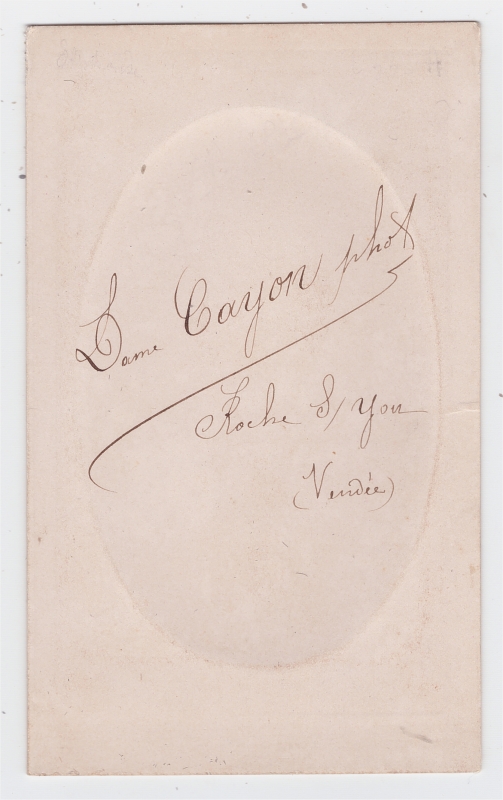 Dame Cayon phot
Roche S/ Yon
(Vendée)